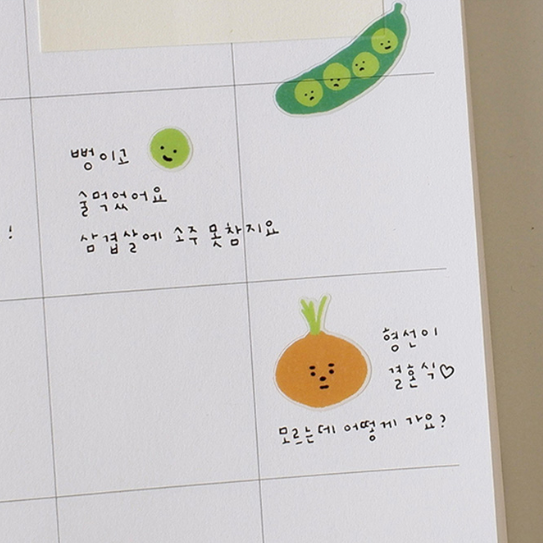 뻥이고
술먹었어요
삼겹살에 소주 못참지요
!
형선이
결혼식♡
모르는데 어떻게 가요?